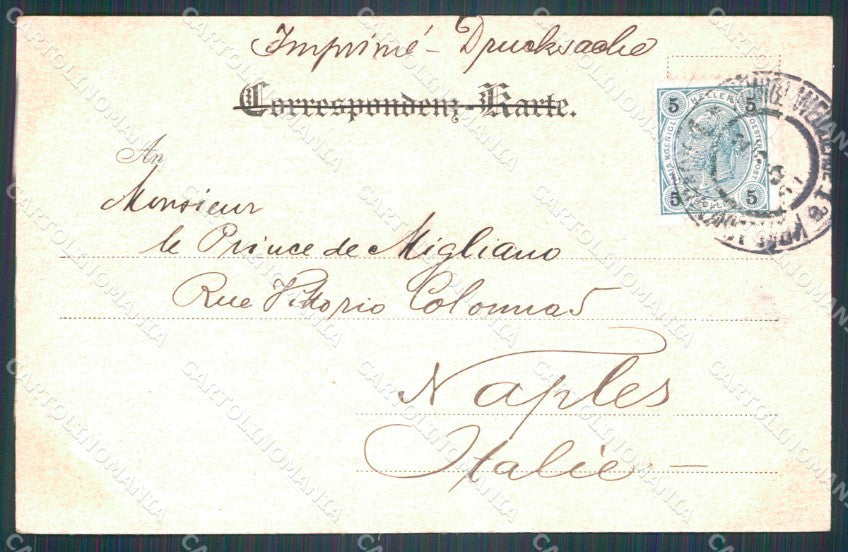 Imprimé - Drucksache
Correspondenz-Karte.
An
Monsieur
le Prince de Migliano
Rue Vittorio Colonna 5
Naples
Italie
5 HELLER 5
5 5
CARTOLINOMANIA